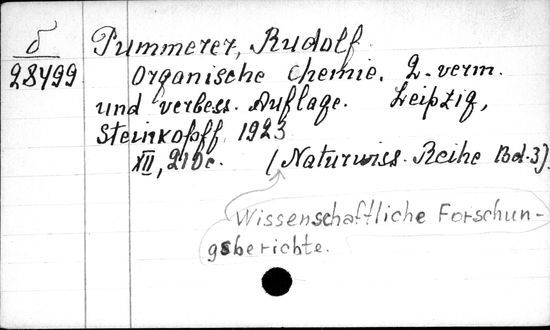 δ
28499
Pummerer, Rudolf.
Organische Chemie. 2. verm.
und verbess. Auflage. Leipzig,
Steinkopff, 1923
XII, 210c. (Naturwiss. Reihe Bd. 3).
Wissenschaftliche Forschun-
gsberichte.